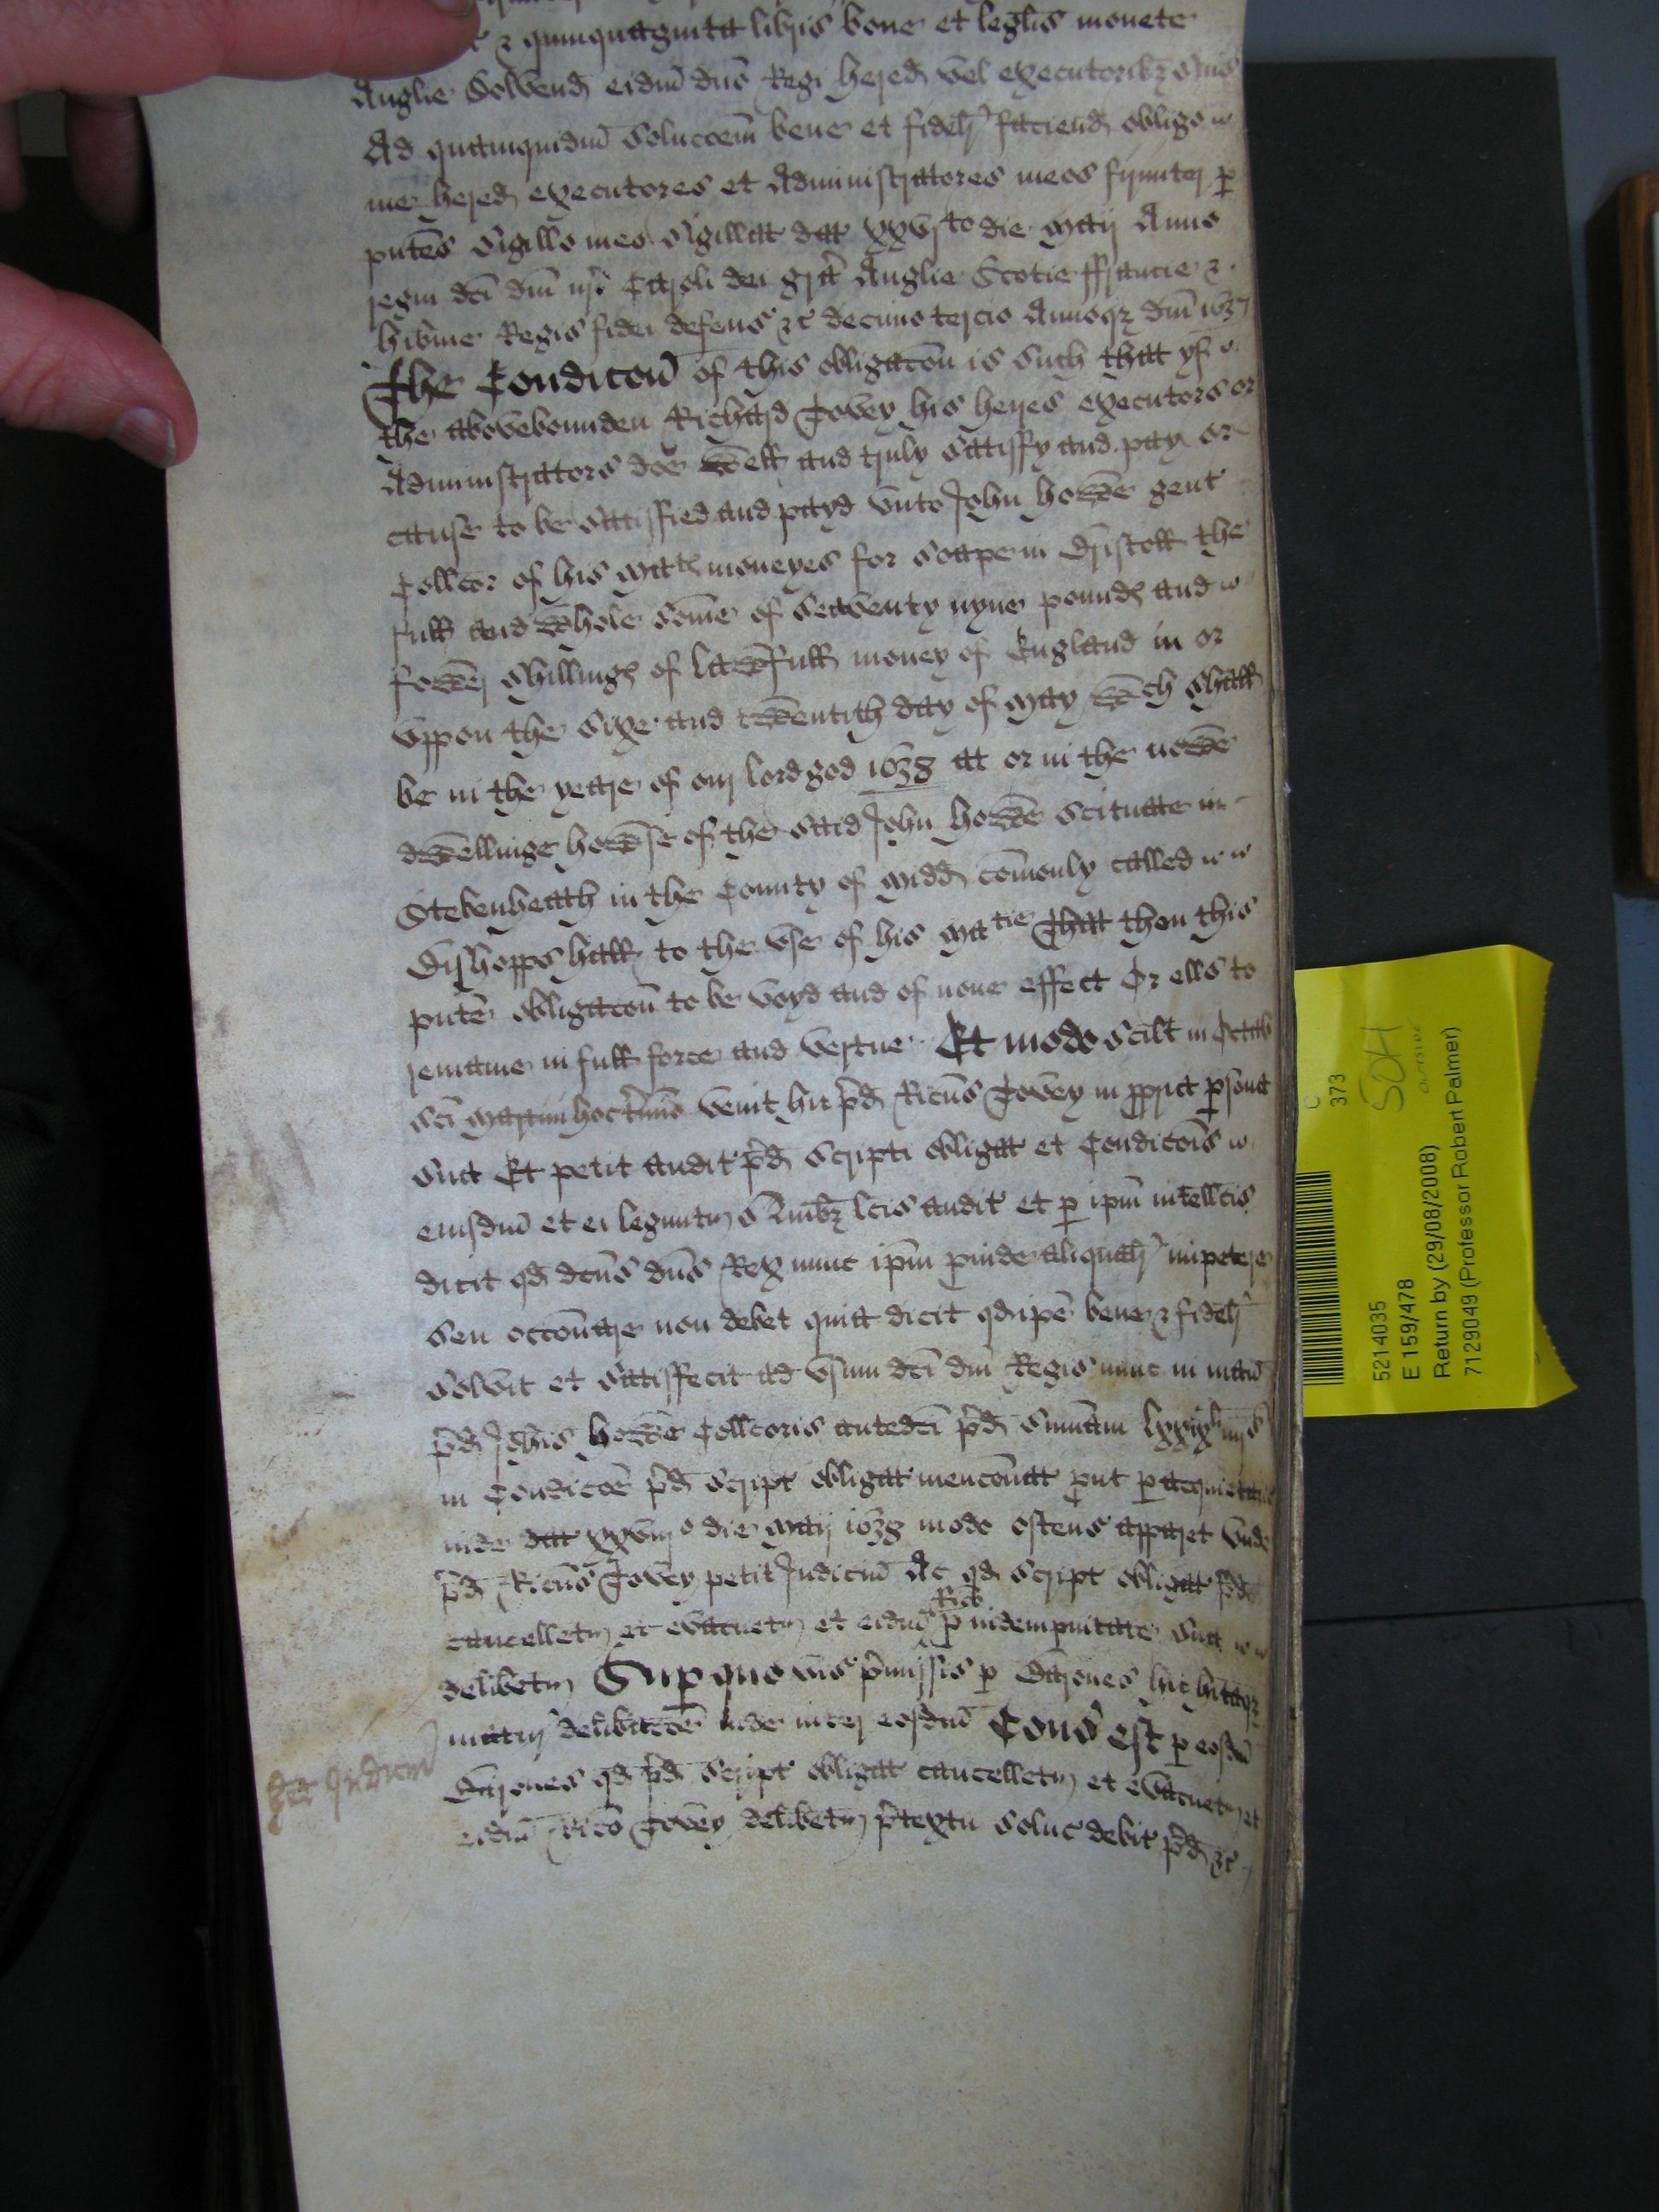 & quinquaginta libris bone et leglis monete
Anglie Solvend eidm dno Regi hered vel executoribz suis
Ad quamquidm solucoem bene et fidelr faciend obligo
me hered executores et Administratores meos firmiter p
pntes Sigillo meo Sigillat dat xxvjto die Maij Anno
regni dci dni nri Caroli dei gra Anglie Scotie ffrancie &
hibnie Regis fidei defens &c decimo tercio Annoqz dni 1637
The Condicon of this obligacon is such that yf
the abovebounden Richard Tovey his heires executors or
Administrators doe well and truly satisfy and pay or
cause to be satisfied and payd unto John howe gent
Collcor of his Mats moneyes for soape in Bristoll the
full and whole some of seaventy nyne pounds and
fower shillings of lawfull money of England in or
uppon the sixe and twentith day of May wch shall
be in the yeare of our lord god 1638 at or in the nowe
dwellinge howse of the said John howe scituate in
Stebenheath in the County of Midd comonly called
Bishopps hall to the use of his Matie That then this
pnte obligacon to be voyd and of none effect Or ells to
remaine in full force and vertue Et modo scilt in Octab
Sci Martini hoc termino venit hic pd Ricus Tovey in ppria psona
sua Et petit audit pd scripti obligat et Condicois
eiusdm et ei leguntur Quibz lcis audit et p ipm intellcis
dicit qd dcus dns Rex nunc ipm pinde aliqualr impetere
seu occonare non debet quia dicit qd ipe bene & fidelr
solvit et satisfecit ad usum dci dni Regis nunc in manu
pd Johis howe Collcoris antedci pd summam lxxixli iiijs
in Condicoe pd script obligat menconat put p acquietanc
inde dat xxviijo die Maij 1638 modo ostens apparet Unde
pd Ricus Tovey petit Judicm Ac qd script obligat pd
cancelletur et evacuetur et eidm Rico p indempnitate sua
delibetur Sup quo vis pmissis p Barones hic hitaqz
matur delibacoe inde inter eosdm Cons est p eosdm
Barones qd pd script obligat cancelletur et evacuetur et
eidm Rico Tovey delibetur ptextu soluc debit pd &c
Judicm
5214035
E 159/478
Return by (29/08/2008)
7129049 (Professor Robert Palmer)
C
373
SOH